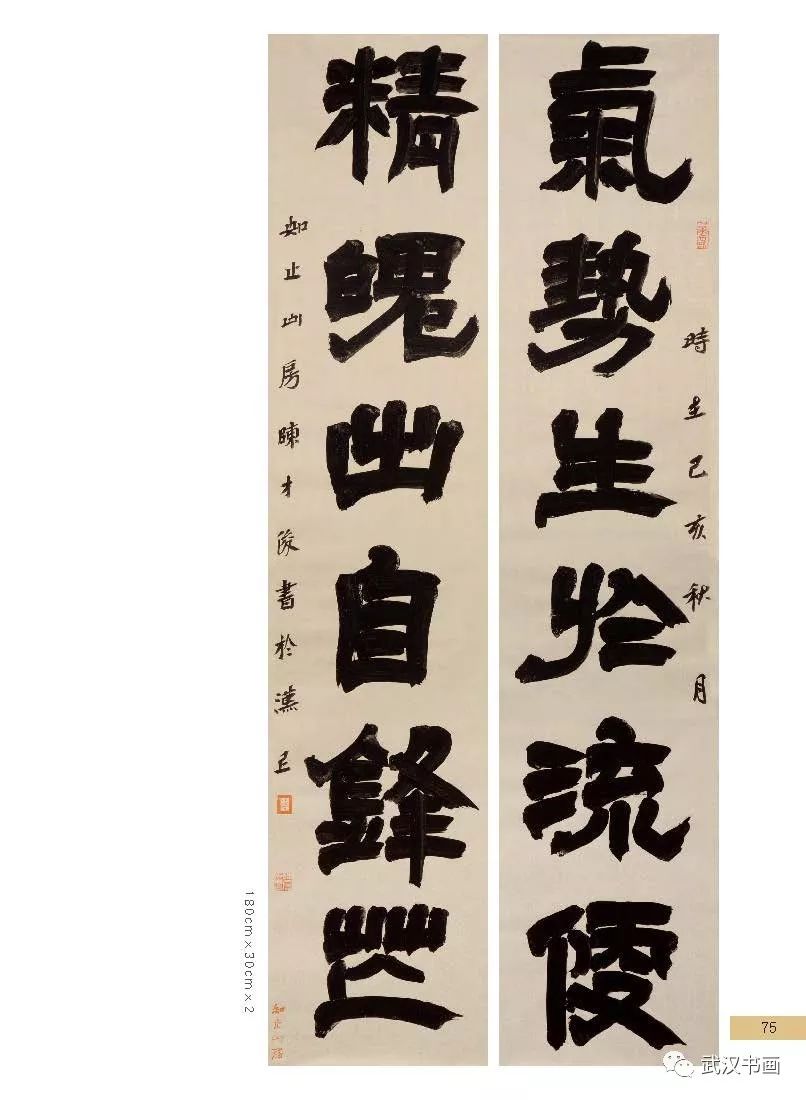 氣勢生於流便
時在己亥秋月
精魄出自鋒芒
知止山房陳才俊書於漢上
知止山房
180cm×30cm×2
75
武汉书画